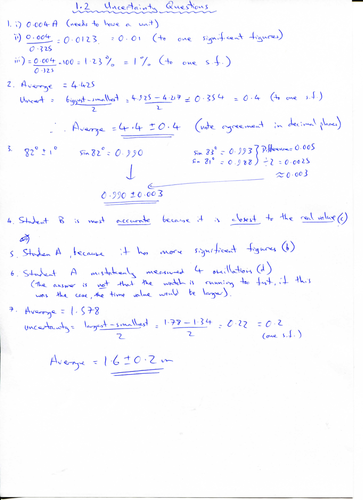 1.2 Uncertainty Questions
1. i) 0.004 A (needs to have a unit)
ii) 0.004 / 0.325 = 0.0123 = 0.01 (to one significant figures)
iii) = 0.004 / 0.325 × 100 = 1.23% = 1% (to one s.f.)
2. Average = 4.425
Uncert = biggest - smallest / 2 = 4.925 - 4.217 / 2 = 0.354 = 0.4 (to one s.f.)
∴ Average = 4.4 ± 0.4 (note agreement in decimal places)
3. 82° ± 1° sin 82° = 0.990 sin 83° = 0.993 } Difference = 0.005
sin 81° = 0.988 } ÷ 2 = 0.0025
≈ 0.003
0.990 ± 0.003
4. Student B is most accurate because it is closest to the real value (c)
5. Student A, because it has more significant figures (b)
6. Student A mistakenly measured 4 oscillations (d)
(the answer is not that the watch is running to fast, if this
was the case, the time value would be larger).
7. Average = 1.578
uncertainty = largest - smallest / 2 = 1.78 - 1.34 / 2 = 0.22 = 0.2
(one s.f.)
Average = 1.6 ± 0.2 m